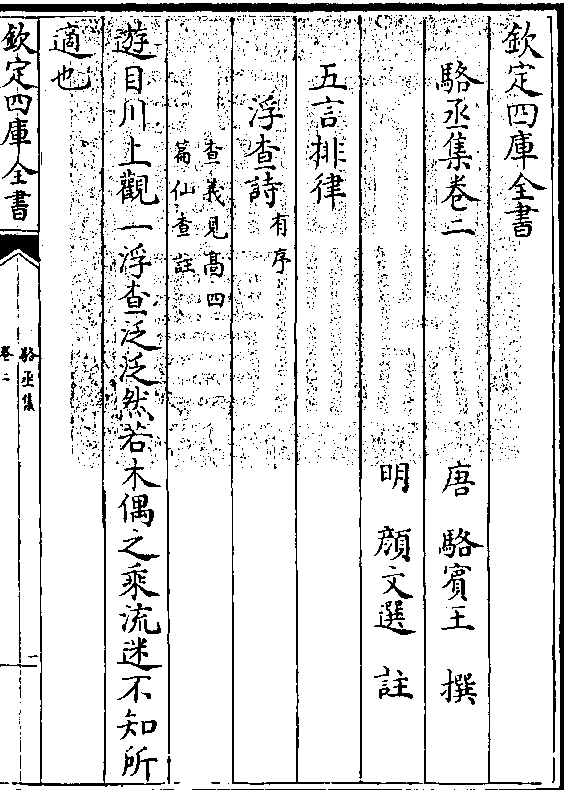 欽定四庫全書
駱丞集卷二
唐 駱賓王 撰
明 顔文選 註
五言排律
浮查詩有序
查義見髙四
篇仙查註
遊目川上觀一浮查泛泛然若木偶之乘流迷不知所
適也
欽定四庫全書
駱丞集
卷二
一